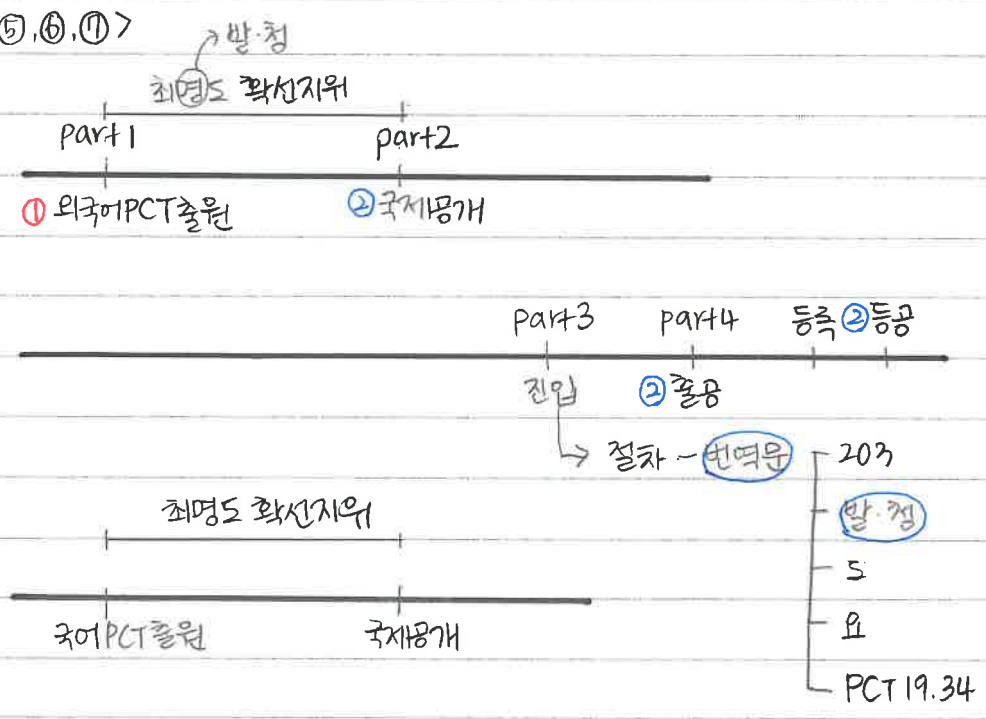 ⑤,⑥,⑦>
발·청
최명도 확선지위
part1 part2
① 외국어PCT출원 ②국제공개
part3 part4 등록 ②등공
진입 ②출공
절차 - 번역문 203
발·청
도
요
PCT 19.34
최명도 확선지위
국어PCT출원 국제공개